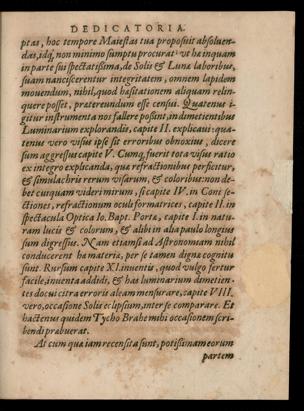 DEDICATORIA.
ptas, hoc tempore Maiestas tua proposuit absoluen-
das, idq; non minimo sumptu procurat: ut hæ inquam
in parte sui spectatissima, de Solis & Lunæ laboribus,
suam nanciscerentur integritatem, omnem lapidem
mouendum, nihil, quod hæsitationem aliquam relin-
quere posset, prætereundum esse censui. Quatenus i-
gitur instrumenta nos fallere possint, in dimetientibus
Luminarium explorandis, capite II. explicaui: qua-
tenus vero visus ipse sit erroribus obnoxius, dicere
sum aggressus capite V. Cumq; fuerit tota visus ratio
ex integro explicanda, quæ refractionibus perficitur,
& simulachris rerum visarum, & coloribus: non de-
bet cuiquam videri mirum, si capite IV. in Coni se-
ctiones, refractionum oculi formatrices, capite II. in
spectacula Optica Io. Bapt. Portæ, capite I. in natu-
ram lucis & colorum, & alibi in alia paulo longius
sum digressus. Nam etiamsi ad Astronomiam nihil
conducerent hæ materiæ, per se tamen dignæ cognitu
sunt. Rursum capite XI. inuentis, quod vulgo fertur
facile, inuenta addidi, & has luminarium dimetien-
tes docui citra erroris aleam mensurare, capite VIII.
vero, occasione Solis eclipsium, inter se comparare. Et
hactenus quidem Tycho Brahe mihi occasionem scri-
bendi præbuerat.
At cum quæ iam recensita sunt, potissimam eorum
partem